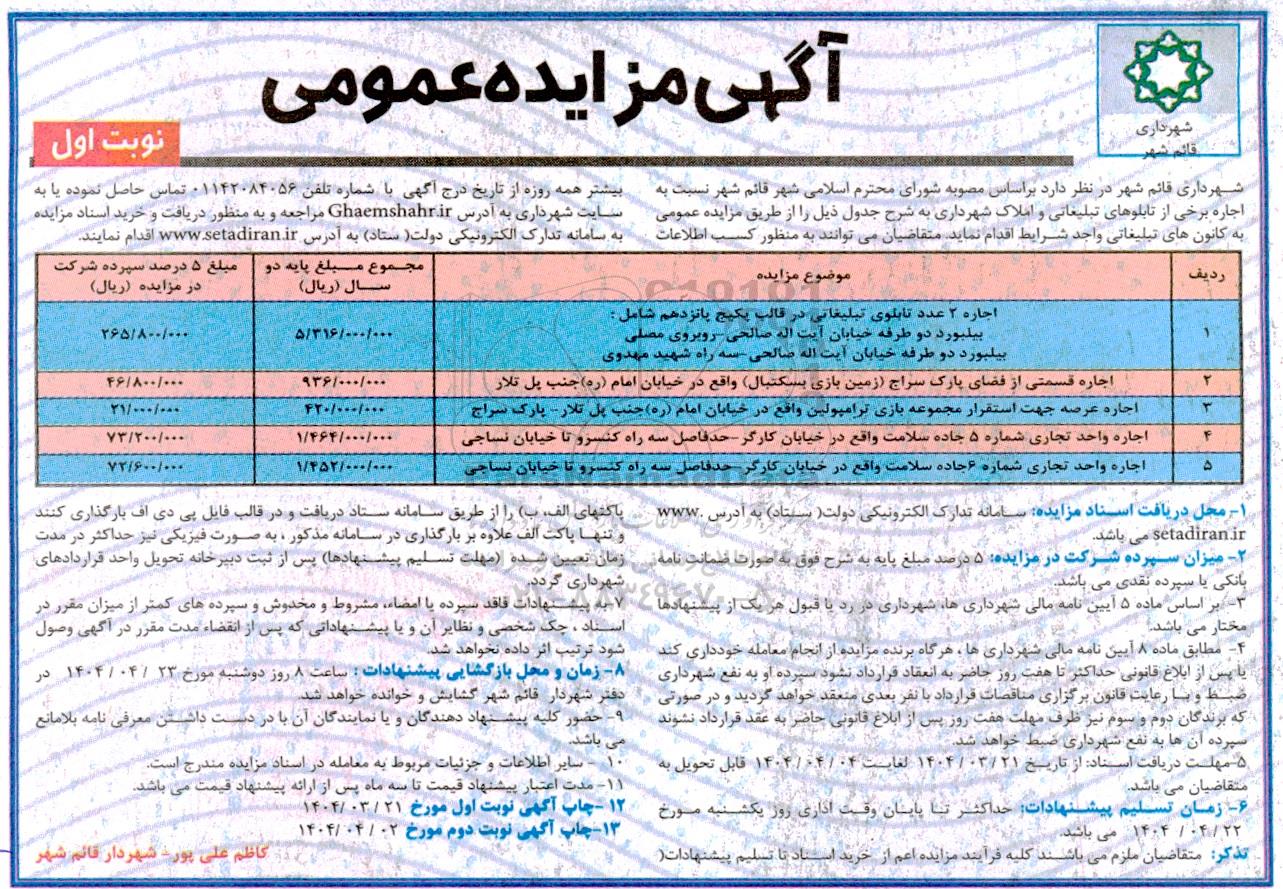 شهرداری
قائم شهر
آگهی مزایده عمومی
نوبت اول
شـهرداری قائم شهر در نظر دارد براساس مصوبه شورای محترم اسلامی شهر قائم شهر نسبت به
اجاره برخی از تابلوهای تبلیغاتی و املاک شهرداری به شرح جدول ذیل را از طریق مزایده عمومی
به کانون های تبلیغاتی واحد شـرایط اقدام نماید. متقاضیان می توانند به منظور کسـب اطلاعات
بیشتر همه روزه از تاریخ درج آگهی با شماره تلفن ۰۱۱۴۲۰۸۴۰۵۶ تماس حاصل نموده یا به
سـایت شهرداری به آدرس Ghaemshahr.ir مراجعه و به منظور دریافت و خرید اسناد مزایده
به سامانه تدارک الکترونیکی دولت( ستاد) به آدرس www.setadiran.ir اقدام نمایند.
ردیف موضوع مزایده مجـمـوع مـبـلغ پایه دو سـال (ریال) مبلغ ۵ درصد سپرده شرکت در مزایده (ریال)
اجاره ۲ عدد تابلوی تبلیغاتی در قالب پکیج پانزدهم شامل :
۱ بیلبورد دو طرفه خیابان آیت اله صالحی-روبروی مصلی ۵/۳۱۶/۰۰۰/۰۰۰ ۲۶۵/۸۰۰/۰۰۰
بیلبورد دو طرفه خیابان آیت اله صالحی-سه راه شهید مهدوی
۲ اجاره قسمتی از فضای پارک سراج (زمین بازی بسکتبال) واقع در خیابان امام (ره)جنب پل تلار ۹۳۶/۰۰۰/۰۰۰ ۴۶/۸۰۰/۰۰۰
۳ اجاره عرصه جهت استقرار مجموعه بازی ترامپولین واقع در خیابان امام (ره)جنب پل تلار - پارک سراج ۴۲۰/۰۰۰/۰۰۰ ۲۱/۰۰۰/۰۰۰
۴ اجاره واحد تجاری شماره ۵ جاده سلامت واقع در خیابان کارگر -حدفاصل سه راه کنسرو تا خیابان نساجی ۱/۴۶۴/۰۰۰/۰۰۰ ۷۳/۲۰۰/۰۰۰
۵ اجاره واحد تجاری شماره ۶جاده سلامت واقع در خیابان کارگر -حدفاصل سه راه کنسرو تا خیابان نساجی ۱/۴۵۲/۰۰۰/۰۰۰ ۷۲/۶۰۰/۰۰۰
ParsNamadData
۱- محل دریافت اسـناد مزایده: سـامانه تدارک الکترونیکی دولت( سـتاد) به آدرس www.
setadiran.ir می باشد.
۲- میزان سـپرده شـرکت در مزایده: ۵ درصد مبلغ پایه به شرح فوق به صورت ضمانت نامه
بانکی یا سپرده نقدی می باشد.
۳- بر اساس ماده ۵ آیین نامه مالی شهرداری ها، شهرداری در رد یا قبول هر یک از پیشنهادها
مختار می باشد.
۴- مطابق ماده ۸ آیین نامه مالی شهرداری ها ، هرگاه برنده مزایده از انجام معامله خودداری کند
یا پس از ابلاغ قانونی حداکثر تا هفت روز حاضر به انعقاد قرارداد نشود سپرده او به نفع شهرداری
ضبـط و بـا رعایت قانون برگزاری مناقصات قرارداد با نفر بعدی منعقد خواهد گردید و در صورتی
که برندگان دوم و سوم نیز ظرف مهلت هفت روز پس از ابلاغ قانونی حاضر به عقد قرارداد نشوند
سپرده آن ها به نفع شهرداری ضبط خواهد شد.
۵-مهلـت دریافت اسـناد: از تاریـخ ۲۱ / ۰۳ / ۱۴۰۴ لغایـت ۰۴ / ۰۴ / ۱۴۰۴ قابل تحویل به
متقاضیان می باشد.
۶- زمـان تسـلیم پیشـنهادات: حداکثـر تـا پایـان وقـت اداری روز یکشـنبه مـورخ
۲۲ / ۰۴ / ۱۴۰۴ می باشد.
تذکر: متقاضیان ملزم می باشـند کلیه فرآیند مزایده اعم از خرید اسـناد تا تسلیم پیشنهادات(
پاکتهای الف، ب) را از طریق سـامانه ستاد دریافت و در قالب فایل پی دی اف بارگذاری کنند
و تنهـا پاکت الف علاوه بر بارگذاری در سـامانه مذکور ، به صـورت فیزیکی نیز حداکثر در مدت
زمان تعیین شـده (مهلت تسـلیم پیشـنهادها) پس از ثبت دبیرخانه تحویل واحد قراردادهای
شهرداری گردد.
۷-به پیشـنهادات فاقد سپرده یا امضاء، مشروط و مخدوش و سپرده های کمتر از میزان مقرر در
اسـناد ، چک شخصی و نظایر آن و یا پیشـنهاداتی که پس از انقضاء مدت مقرر در آگهی وصول
شود ترتیب اثر داده نخواهد شد.
۸- زمان و محل بازگشایی پیشنهادات : ساعت ۸ روز دوشنبه مورخ ۲۳ / ۰۴ / ۱۴۰۴ در
دفتر شهردار قائم شهر گشایش و خوانده خواهد شد.
۹- حضور کلیه پیشـنهاد دهندگان و یا نمایندگان آن با در دسـت داشـتن معرفی نامه بلامانع
می باشد.
۱۰ - سایر اطلاعات و جزئیات مربوط به معامله در اسناد مزایده مندرج است.
۱۱- مدت اعتبار پیشنهاد قیمت تا سه ماه پس از ارائه پیشنهاد قیمت می باشد.
۱۲ -چاپ آگهی نوبت اول مورخ ۲۱ / ۰۳ /۱۴۰۴
۱۳-چاپ آگهی نوبت دوم مورخ ۰۲ / ۰۴ /۱۴۰۴
کاظم علی پور - شهردار قائم شهر